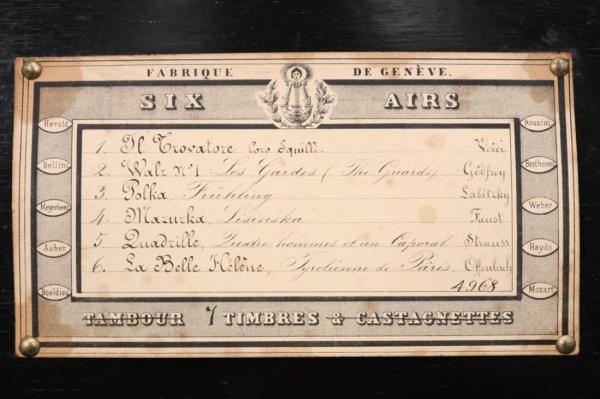 FABRIQUE DE GENÈVE.
SIX AIRS
Herold
Bellini
Meyerbeer
Auber
Boeldieu
1. Il Trovatore Coro Squilli. Verdi
2. Walz Nº1 Les Gardes (The Guards) Godfrey
3. Polka, Frühling Labitzky
4. Mazurka, Lisinska Faust
5. Quadrille, Quatre hommes et un Caporal Strauss
6. La Belle Hélène, Tyrolienne de Pâris. Offenbach
4968
Rossini
Beethoven
Weber
Haydn
Mozart
TAMBOUR 7 TIMBRES & CASTAGNETTES